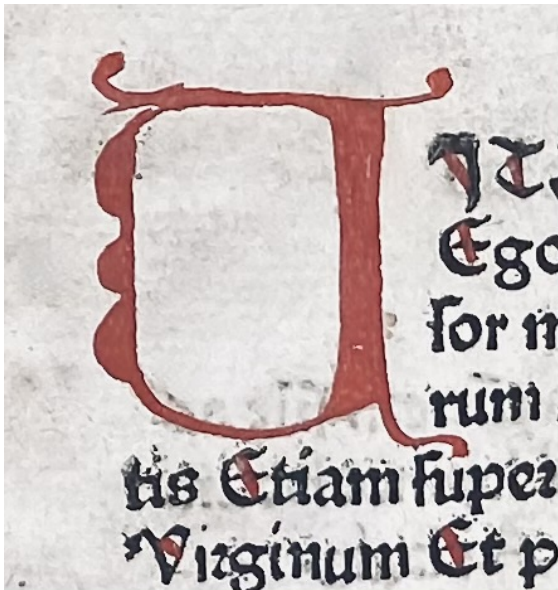 IT
Ego
ſor m
rum
tis Etiam ſuper
Virginum Et p